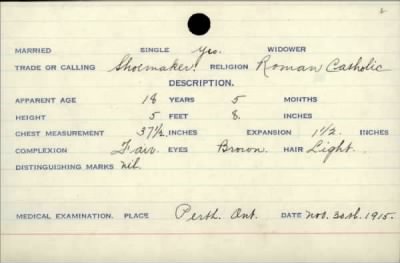 2
MARRIED SINGLE Yes. WIDOWER
TRADE OR CALLING Shoemaker. RELIGION Roman Catholic
DESCRIPTION.
APPARENT AGE 18 YEARS 5 MONTHS
HEIGHT 5 FEET 8. INCHES
CHEST MEASUREMENT 37½. INCHES EXPANSION 1½. INCHES
COMPLEXION Fair. EYES Brown. HAIR Light.
DISTINGUISHING MARKS Nil.
MEDICAL EXAMINATION. PLACE Perth. Ont. DATE Nov. 30th. 1915.